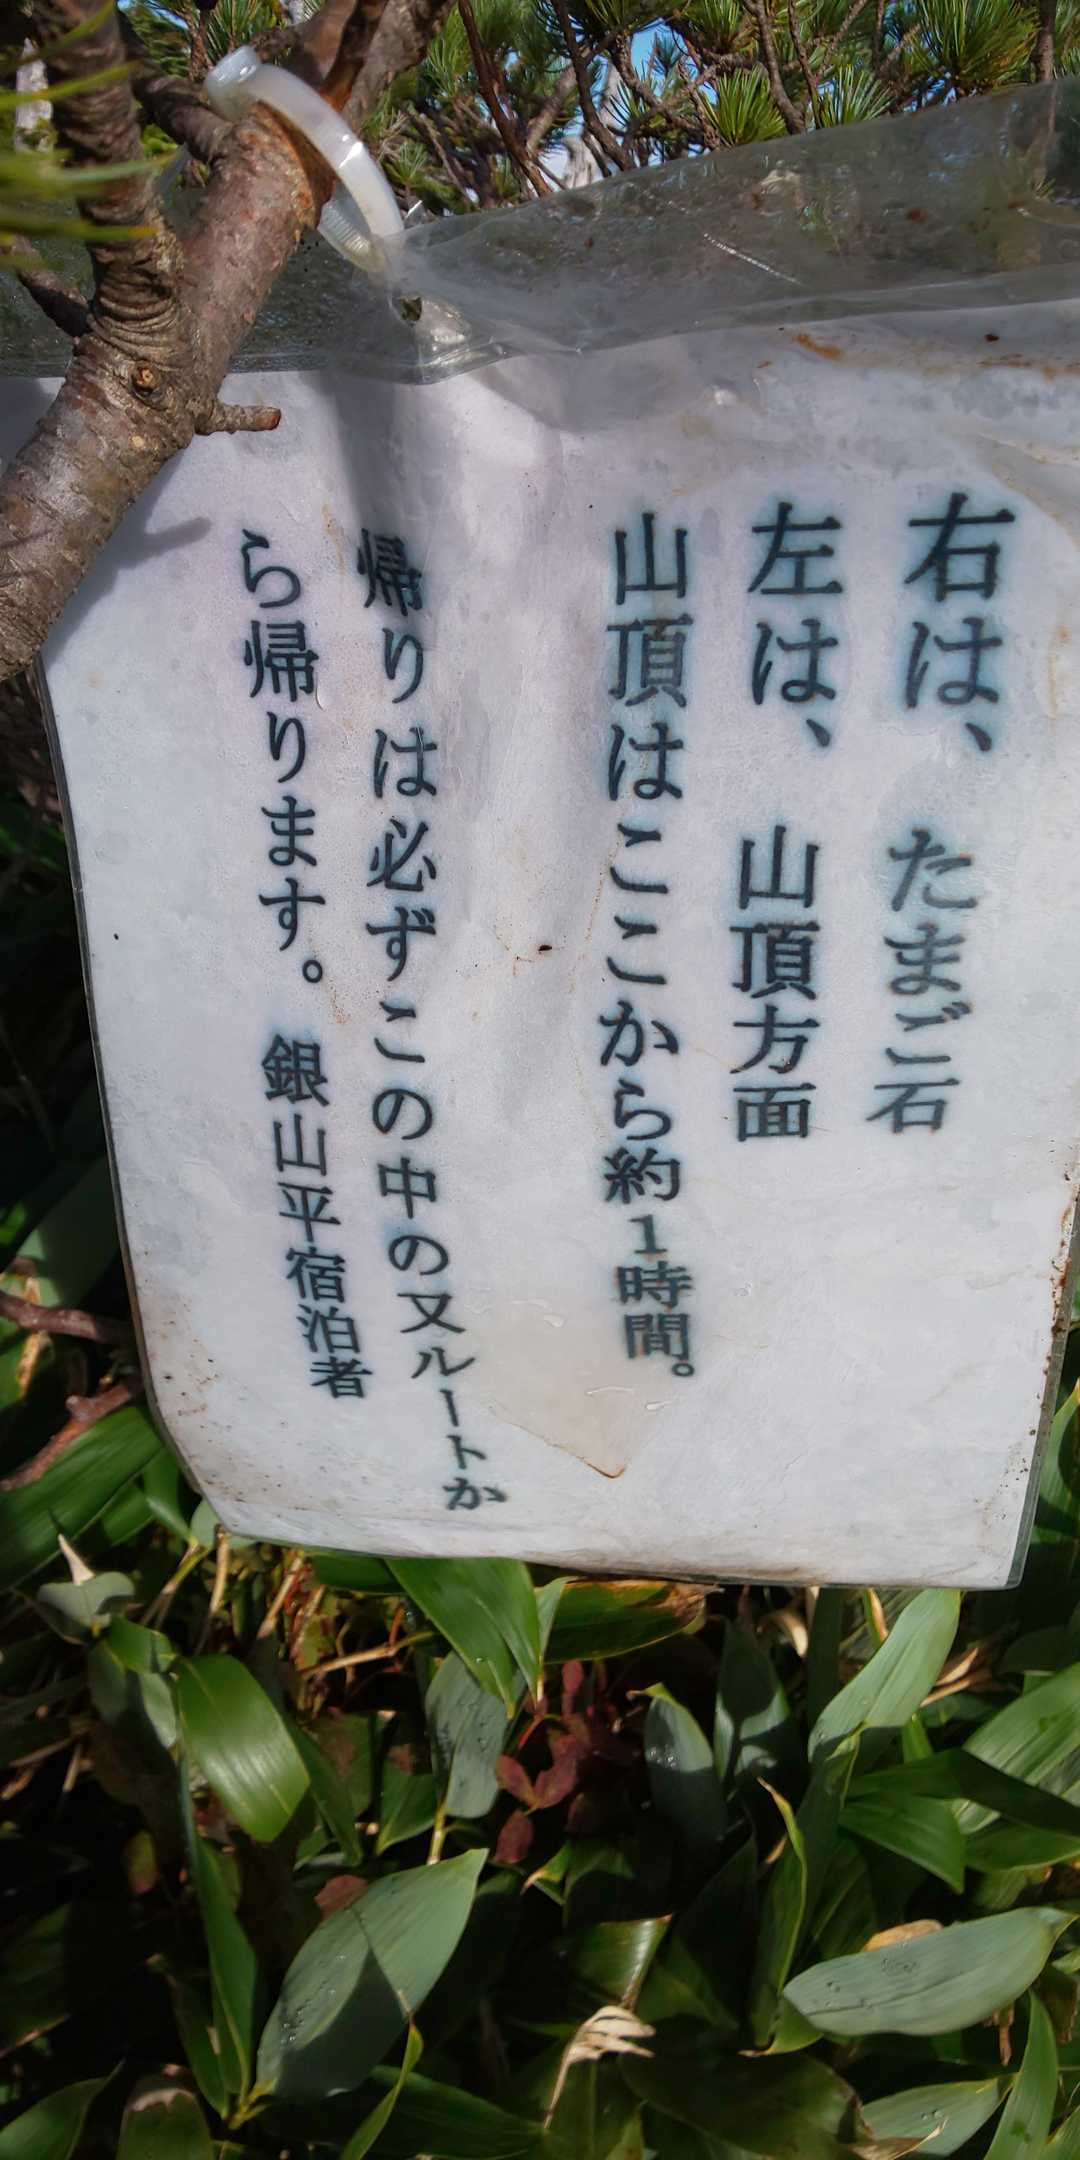 右は、　たまご石
左は、　山頂方面
山頂はここから約１時間。
帰りは必ずこの中の又ルートか
ら帰ります。　銀山平宿泊者